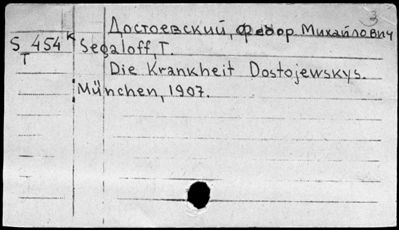 3
Достоевский, Федор Михайлович
S 454 K Segaloff, T.
T
Die Krankheit Dostojewskys.
München, 1907.